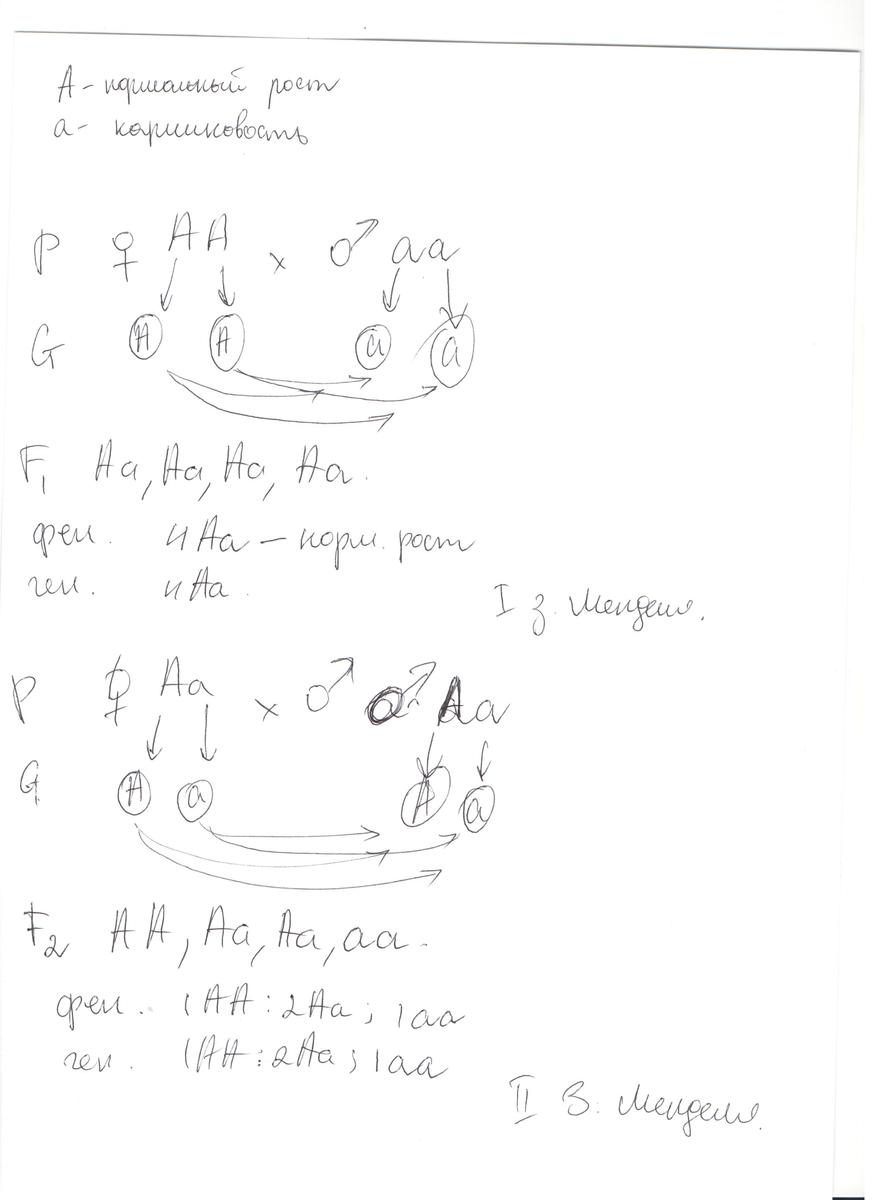 А - нормальный рост
а - карликовость
P ♀ AA x ♂ aa
G A A a a
F1 Aa, Aa, Aa, Aa.
фен. 4Aa - норм. рост
ген. 4Aa.
I з. Менделя.
P ♀ Aa x ♂ Aa
G A a A a
F2 AA, Aa, Aa, aa.
фен. 1AA : 2Aa ; 1aa
ген. 1AA : 2Aa ; 1aa
II З. Менделя.